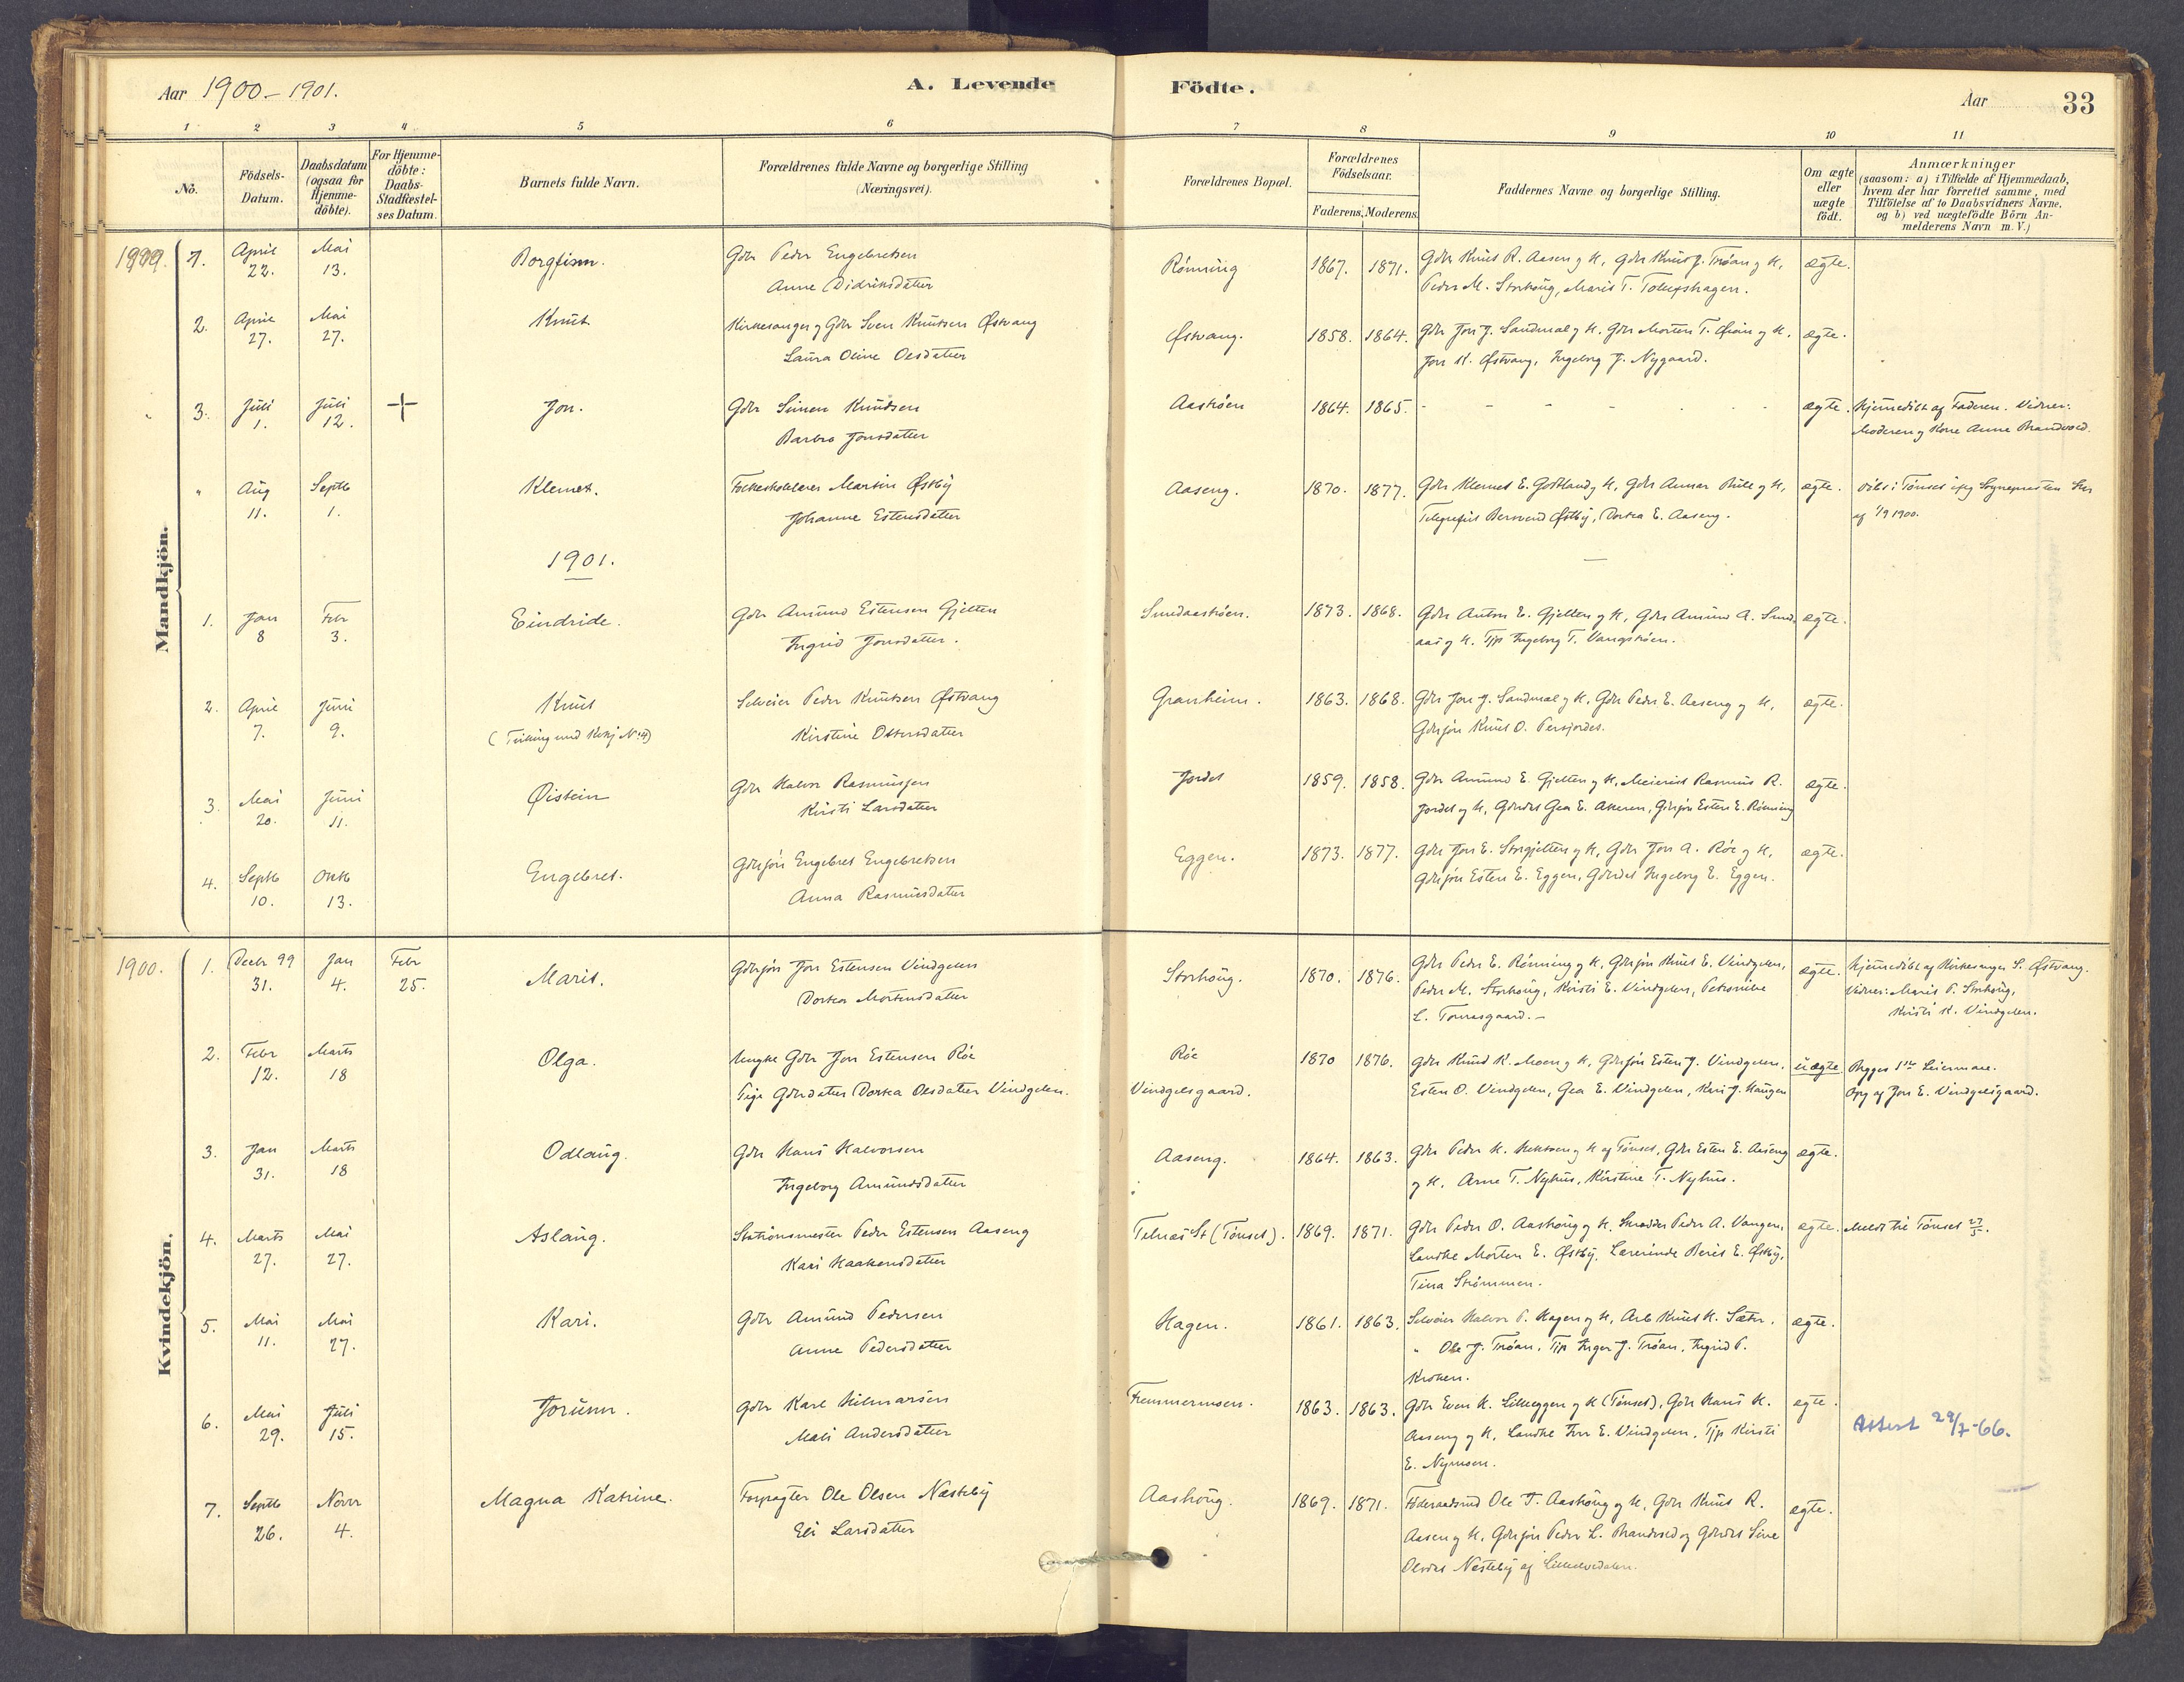 Aar 1900-1901.
A. Levende
Födte.
Aar
33
1 2 3 4 5 6 7 8 9 10 11
No.
Födsels-
Datum.
Daabsdatum
(ogsaa for
Hjemme-
döbte).
For Hjemme-
döbte:
Daabs-
Stadfæstel-
ses Datum.
Barnets fulde Navn.
Forældrenes fulde Navne og borgerlige Stilling
(Næringsvei).
Forældrenes Bopæl.
Forældrenes
Födselsaar.
Faderens. Moderens.
Faddernes Navne og borgerlige Stilling.
Om ægte
eller
uægte
födt.
Anmærkninger
(saasom: a) i Tilfælde af Hjemmedaab,
hvem der har forrettet samme, med
Tilföielse af to Daabsvidners Navne,
og b) ved uægtefödte Börn An-
melderens Navn m. V.)
Mandkjön.
1. April 22. Mai 13. Borgfinn. Gdbr Peder Engebretsen
Anne Didriksdatter
Rönning 1867. 1871. Gdbr Knut R. Aasen g K, Gdbr Knut J. Tröan g K,
Peder M. Storhöug, Marit T. Tollefshagen.
ægte.
2. April 27. Mai 27. Knut Kirkesanger g Gdbr Sven Knutsen Østvang
Laura Oline Olsdatter
Østvang. 1858. 1864. Gdbr Jon J. Sandmæl g K. Gdbr Morten T. Øian g K.
Jon K. Østvang, Ingeborg J. Nygaard.
ægte.
3. Juli 1. Juli 12. + Jon. Gdbr Simen Knudsen
Barbro Jonsdatter
Aaströen 1864. 1865. - - - - - -
ægte. Hjemmedöbt af Faderen. Vidner:
Moderen g Kone Anne Brandvold.
" Aug 11. Septb 1. Klemet. Folkeskolelærer Martin Østby
Johanne Estensdatter
Aaseng. 1870. 1877. Gdbr Klemet E. Godtland g K, Gdbr Annar Rute g K,
Telegrafist Bersvend Østby, Dortea E. Aaseng.
ægte. döbt i Tönset Sognepresten
af 1/9 1900.
1901.
1. Jan 8 Febr 3. Eindride. Gdbr Amund Estensen Gjelten
Ingrid Jonsdatter.
Sundaaströen. 1873. 1868. Gdbr Anton E. Gjelten g K, Gdbr Amund A. Sund-
aas g K. Tjp Ingeborg T. Vangströen.
ægte.
2. April 7. Juni 9. Knut Selveier Peder Knutsen Østvang
Kirstine Ottersdatter
Granheim. 1863. 1868. Gdbr Jon J. Sandmæl g K, Gdbr Peder E. Aaseng g K,
Gdbrsön Knut O. Persjordet.
ægte.
3. Mai 20. Juni 11. Øistein Gdbr Halvor Rasmussen
Kirsti Larsdatter
Jordet 1859. 1858. Gdbr Amund E. Gjelten g K, Meierist Rasmus R.
Jordet g K, Gdbrdat Gea E. Akeren, Gdbrsön Esten E. Rönning
ægte.
4. Septb 10. Oktb 13. Engebret. Gdbrsön Engebret Engebretsen
Anna Rasmusdatter
Eggen. 1873. 1877. Gdbr Jon E. Storgjelten g K, Gdbr Jon A. Röe g K,
Gdbrsön Esten E. Eggen, Gdbrdat Ingeborg E. Eggen.
ægte.
Kvindekjön.
1900. 1. Decbr 99 31. Jan 4. Febr 25. Marit. Gdbrsön Jon Estensen Vindgelen
Dortea Mortensdatter
Storhöug. 1870. 1876. Gdbr Peder E. Rönning g K, Gdbrsön Knut E. Vindgelen,
Peder M. Storhöug, Kirsti E. Vindgelen, Petronille
L. Tomasgaard.-
ægte. Hjemmedöbt af Kirkesanger S. Østvang.
Vidner: Marit P. Storhöug,
Kirsti K. Vindgelen.
2. Febr 12. Marts 18 Olga. Ungke Gdbr Jon Estensen Röe
Pige Gdbrdatter Dortea Olsdatter Vindgelen.
Röe
Vindgelsgaard.
1870 1876. Gdbr Knud K. Moen g K, Gdbrsön Esten J. Vindgelen,
Esten O. Vindgelen, Gea E. Vindgelen, Kari J. Haugen
uægte Begges 1ste Leiermaal.
Opg af Jon E. Vindgelsgaard.
3. Jan 31. Marts 18 Odlaug. Gdbr Hans Halvorsen
Ingeborg Amundsdatter
Aaseng. 1864. 1863. Gdbr Peder H. Hektoen g K af Tönset, Gdbr Esten E. Aaseng
g K. Arne T. Nyhus, Kirstine T. Nyhus.
ægte.
4. Marts 27. Mai 27. Aslaug. Stationsmester Peder Estensen Aaseng
Kari Haakensdatter
Telnæs St (Tönset). 1869. 1871. Gdbr Peder O. Aashöug g K. Skrædder Peder A. Vangen,
Landhe Morten E. Østby, Lærerinde Berit E. Østby,
Tina Strömmen.
ægte. Meldt til Tönset 27/5.
5. Mai 11. Mai 27. Kari. Gdbr Amund Pedersen
Anne Pedersdatter
Hagen. 1861. 1863. Selveier Halvor P. Hagen g K, Arb Knut H. Sæter,
" Ole J. Tröan, Tjp Inger J. Tröan, Ingrid P.
Kroken.
ægte.
6. Mai 29. Juli 15. Jorunn. Gdbr Karl Hilmarsen
Mali Andersdatter
Fremmermoen. 1863. 1863. Gdbr Even K. Lilleeggen g K (Tönset), Gdbr Hans H.
Aaseng g K, Landhe Iver E. Vindgelen, Tjp Kirsti
E. Nymoen.
ægte. Attest 29/7-66.
7. Septb 26. Novr 4. Magna Katrine. Forpagter Ole Olsen Næsteby
Eli Larsdatter
Aashöug. 1869. 1871. Föderaadsmd Ole T. Aashöug g K, Gdbr Knut R.
Aasen g K, Gdbrsön Peder L. Brandvold og Gdbrdat Sine
Olsdat Næsteby af Lilleelvedalen.
ægte.